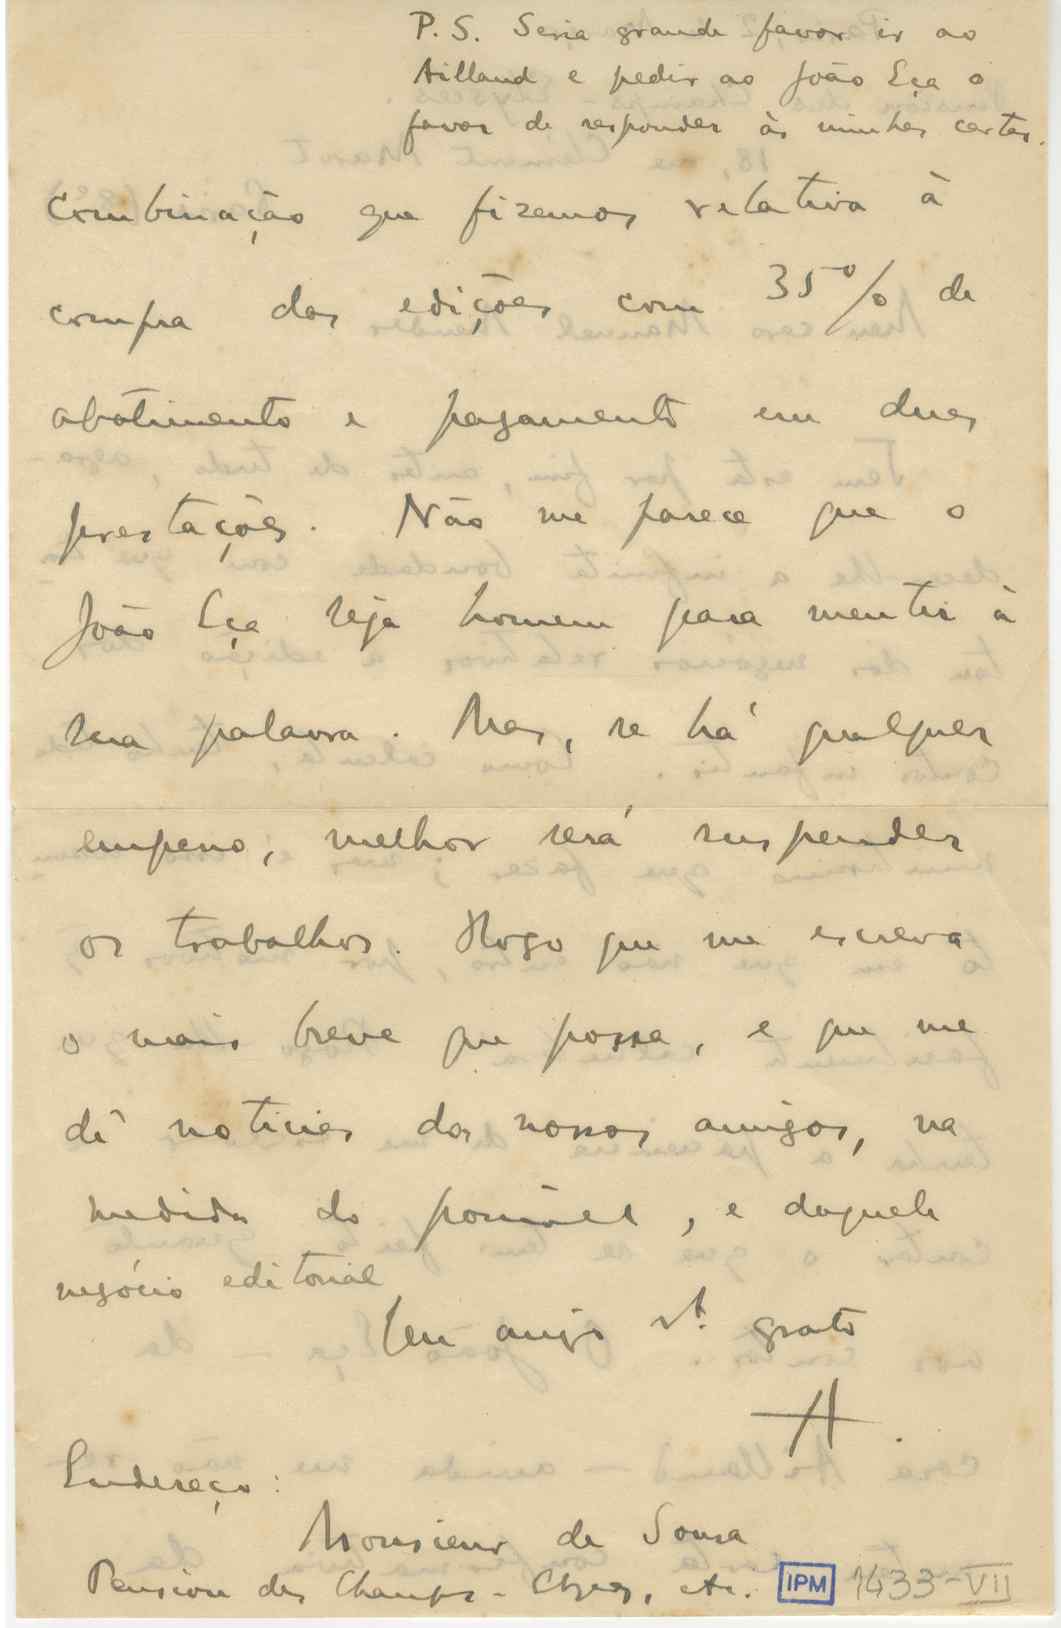 P. S. Seria grande favor ir ao
Ailland e pedir ao João Eça o
favor de responder às minhas cartas.
combinação que fizemos relativa à
compra das edições com 35% de
abatimento e pagamento em duas
prestações. Não me parece que o
João Eça seja homem para mentir à
sua palavra. Mas, se há qualquer
empeno, melhor será suspender
os trabalhos. Rogo que me escreva
o mais breve que possa, e que me
dê noticias dos nossos amigos, na
medida do possível, e daquele
negócio editorial
Seu amigo grato
A.
Endereço:
Monsieur de Sousa
Pension des Champs-Elysées, etc.
IPM 1433-VII